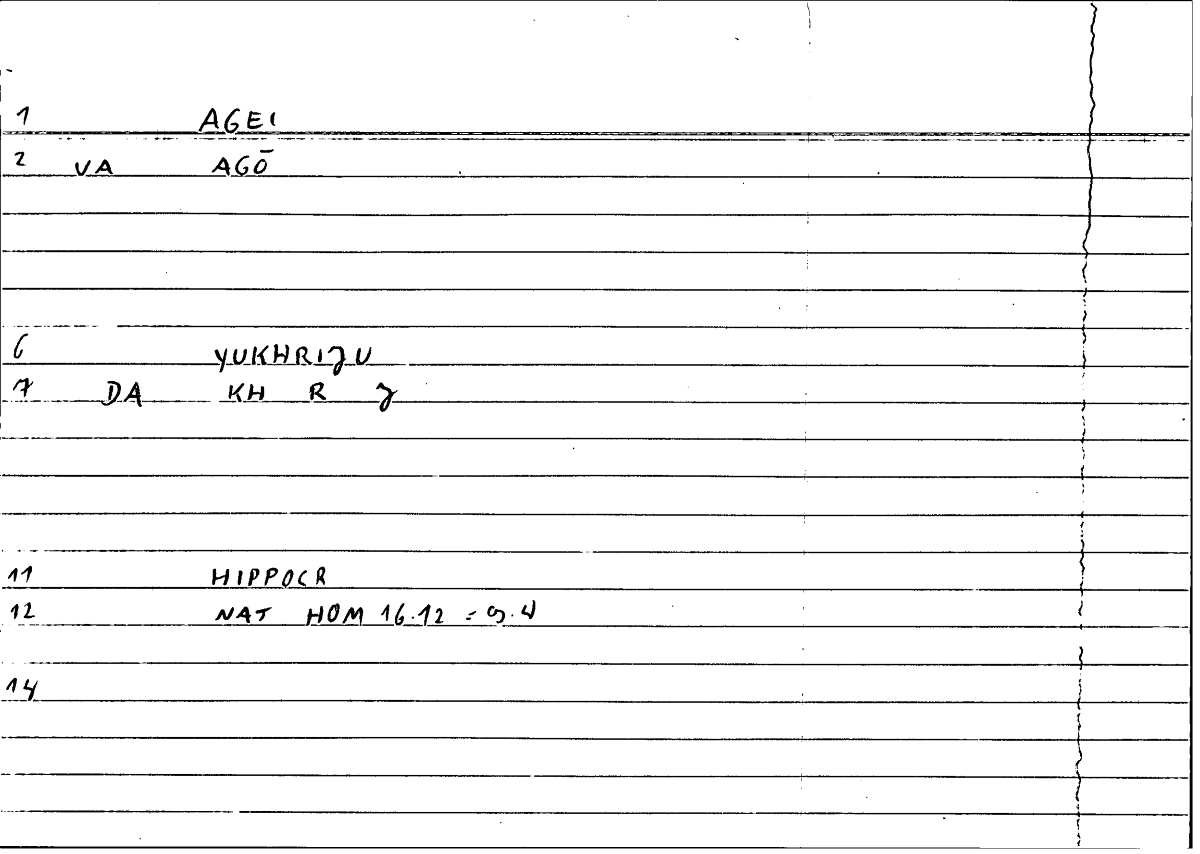 1 AGEI
2 VA AGŌ
6 YUKHRIJU
7 DA KH R J
11 HIPPOCR
12 NAT HOM 16.12 = 9.4
14